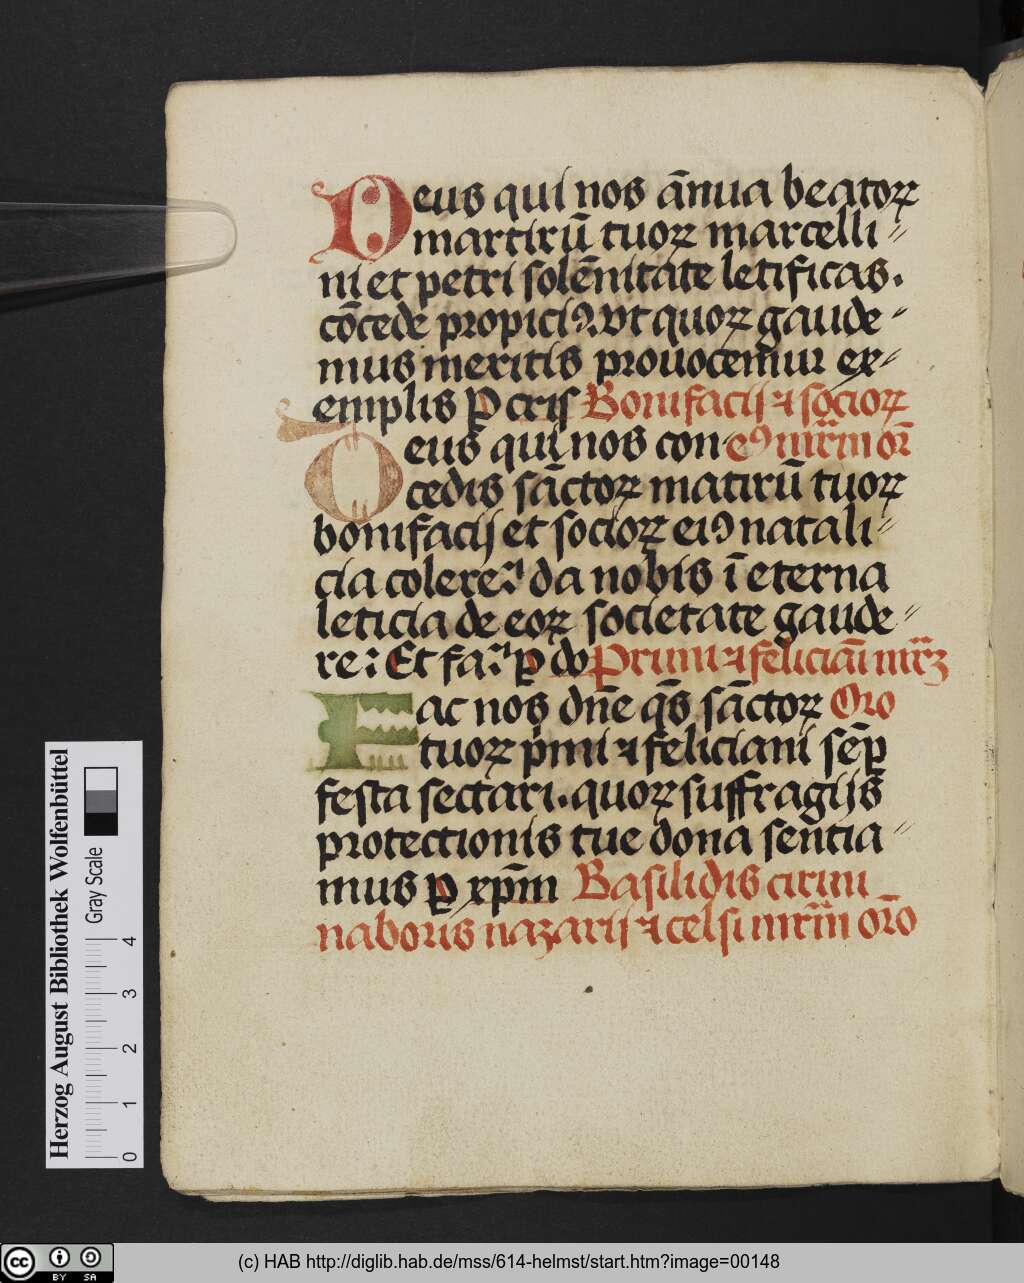 Deus qui nos ān̄ua beatoꝝ
martirū tuoꝝ marcelli⸗
ni et petri solēnitate letificas.
cōcede propiciꝰ. vt quoꝝ gaude⸗
mus meritis prouocem̄ur ex⸗
emplis ꝑ cris Bonifacij ⁊ socioꝝ
Deus qui nos con eiꝰ mr̄m or̄
cedis sāctoꝝ matirū tuoꝝ
bonifacij et socioꝝ eiꝰ natali⸗
cia colere: da nobis ī eterna
leticia de eoꝝ societate gaude⸗
re: Et fa: ꝑ do Primi ⁊ feliciāi mr̄ꝝ
Fac nos dn̄e qs̄ sāctoꝝ Oro
tuoꝝ pͥmi ⁊ feliciani sēꝑ
festa sectari. quoꝝ suffragijs
protectionis tue dona sentia⸗
mus ꝑ xp̄m Basilidis cirini
naboris nazarij ⁊ celsi mr̄m or̄o
Herzog August Bibliothek Wolfenbüttel
Gray Scale
0 1 2 3 4
cc BY SA
(c) HAB http://diglib.hab.de/mss/614-helmst/start.htm?image=00148